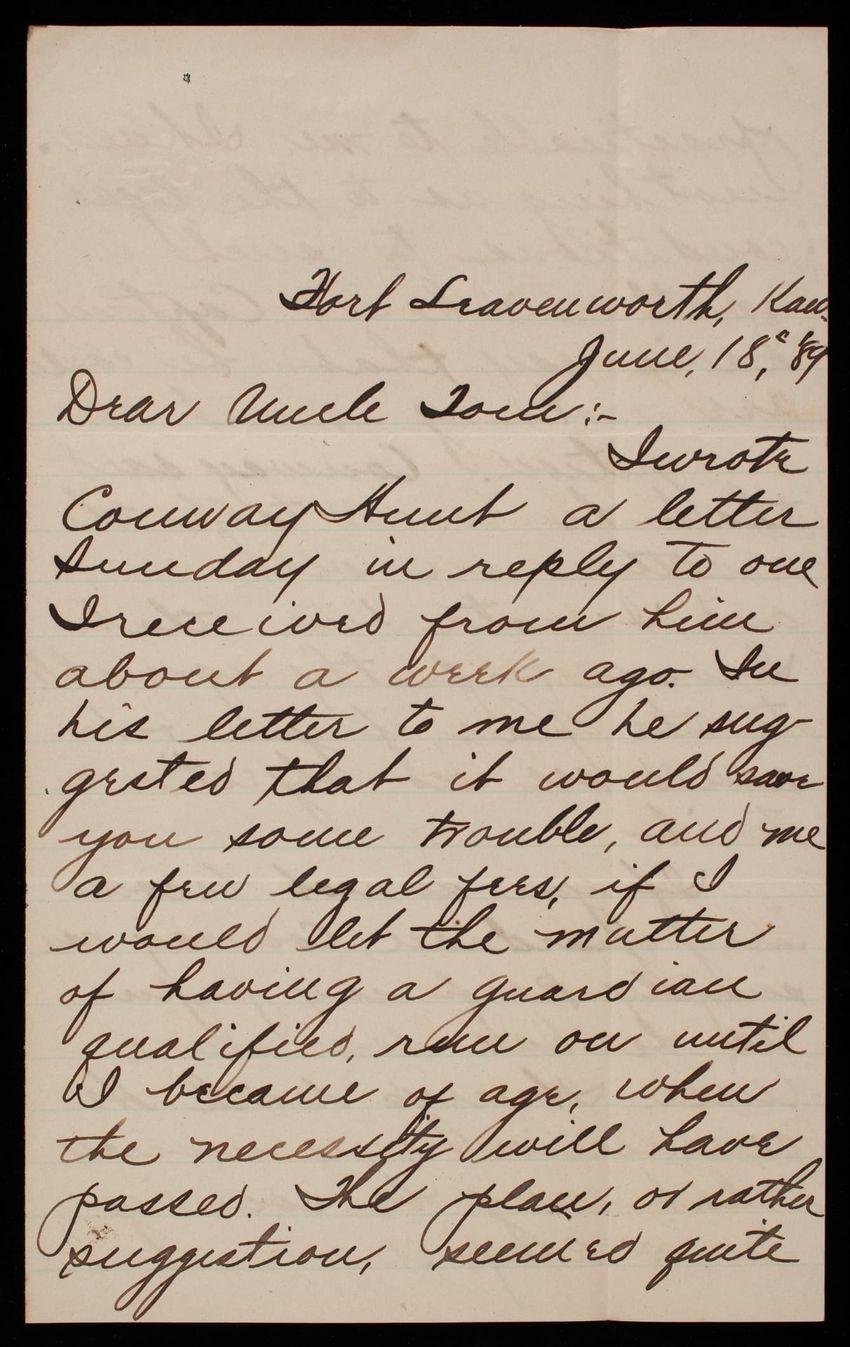 Fort Leavenworth, Kan.
June, 18, '89
Dear Uncle Tom:-
I wrote
Conway Hunt a letter
Sunday in reply to one
I received from him
about a week ago. In
his letter to me he sug-
gested that it would save
you some trouble, and me
a few legal fees, if I
would let the matter
of having a guardian
qualified, run on until
I became of age, when
the necessity will have
passed. The plan, or rather
suggestion, seemed quite